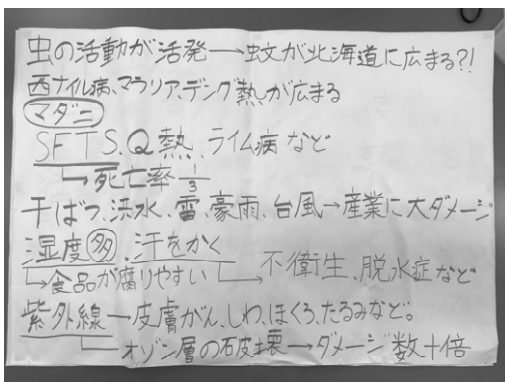 虫の活動が活発→蚊が北海道に広まる?!
西ナイル病、マラリア、デング熱が広まる
マダニ
SFTS、Q熱、ライム病など
→死亡率 1/3
干ばつ、洪水、雷、豪雨、台風→産業に大ダメージ
湿度多 汗をかく
→食品が腐りやすい →不衛生、脱水症など
紫外線→皮膚がん、しわ、ほくろ、たるみなど。
オゾン層の破壊→ダメージ数十倍